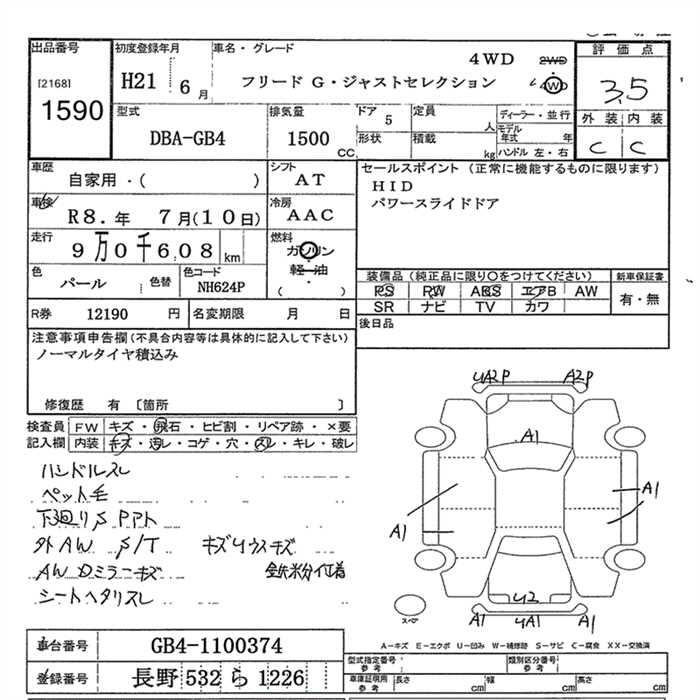 出品番号
[2168]
1590
初度登録年月
H21 6月
車名・グレード
4WD 2WD
フリード G・ジャストセレクション 4WD
評価点
3.5
外装 内装
C C
型式
DBA-GB4
排気量
1500 CC
ドア 5
形状
定員 人
積載 kg
ディーラー・並行
モデル年式 年
ハンドル 左・右
車歴
自家用・( )
シフト
AT
セールスポイント(正常に機能するものに限ります)
HID
パワースライドドア
車検
R8.年 7月(10日)
冷房
AAC
走行
9万0千608 km
燃料
ガソリン
軽油
( )
色
パール 色替
色コード
NH624P
装備品(純正品に限り○をつけてください)
PS PW ABS エアB AW
SR ナビ TV カワ
新車保証書
有・無
R券 12190 円
名変期限 月 日
後日品
注意事項申告欄(不具合内容等は具体的に記入して下さい)
ノーマルタイヤ積込み
修復歴 有 〔箇所 〕
検査員記入欄
FW キズ・飛石・ヒビ割・リペア跡・×要
内装 キズ・汚レ・コゲ・穴・スレ・キレ・破レ
ハンドルスレ
ペット毛
下廻りS Pアト
外AW S/T キズウスキズ
AW Dミラーキズ 鉄粉付着
シートヘタリスレ
UA2P A2P
A1
A1
A1
U2
A1 UA1 A1
スペア
A-キズ E-エクボ U-凹み W-補修跡 S-サビ C-腐食 XX-交換済
車台番号
GB4-1100374
登録番号
長野 532 ら 1226
型式指定番号 参考
類別区分番号 参考
車庫証明用 参考
長さ cm 幅 cm 高さ cm